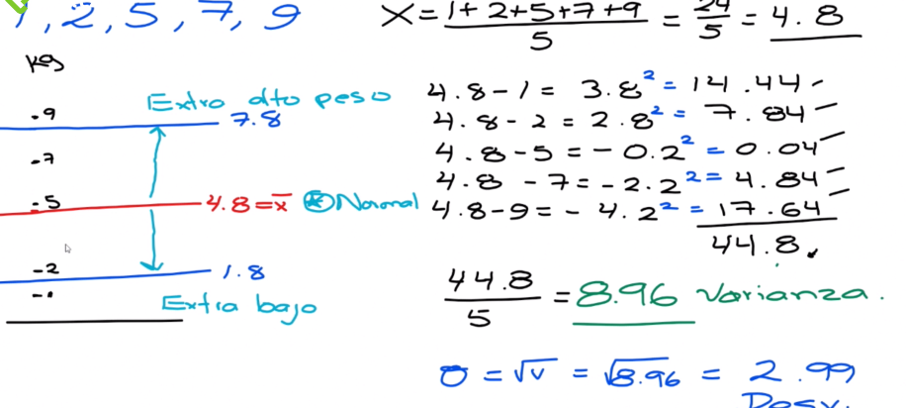 1, 2, 5, 7, 9
X = 1 + 2 + 5 + 7 + 9 / 5 = 24/5 = 4.8
Kg
Extra alto peso
.9
7.8
-7
-5
4.8 = x̄ Normal
-2
1.8
-1
Extra bajo
4.8 - 1 = 3.8² = 14.44
4.8 - 2 = 2.8² = 7.84
4.8 - 5 = -0.2² = 0.04
4.8 - 7 = -2.2² = 4.84
4.8 - 9 = -4.2² = 17.64
44.8
44.8 / 5 = 8.96 Varianza.
σ = √v = √8.96 = 2.99
Desv.